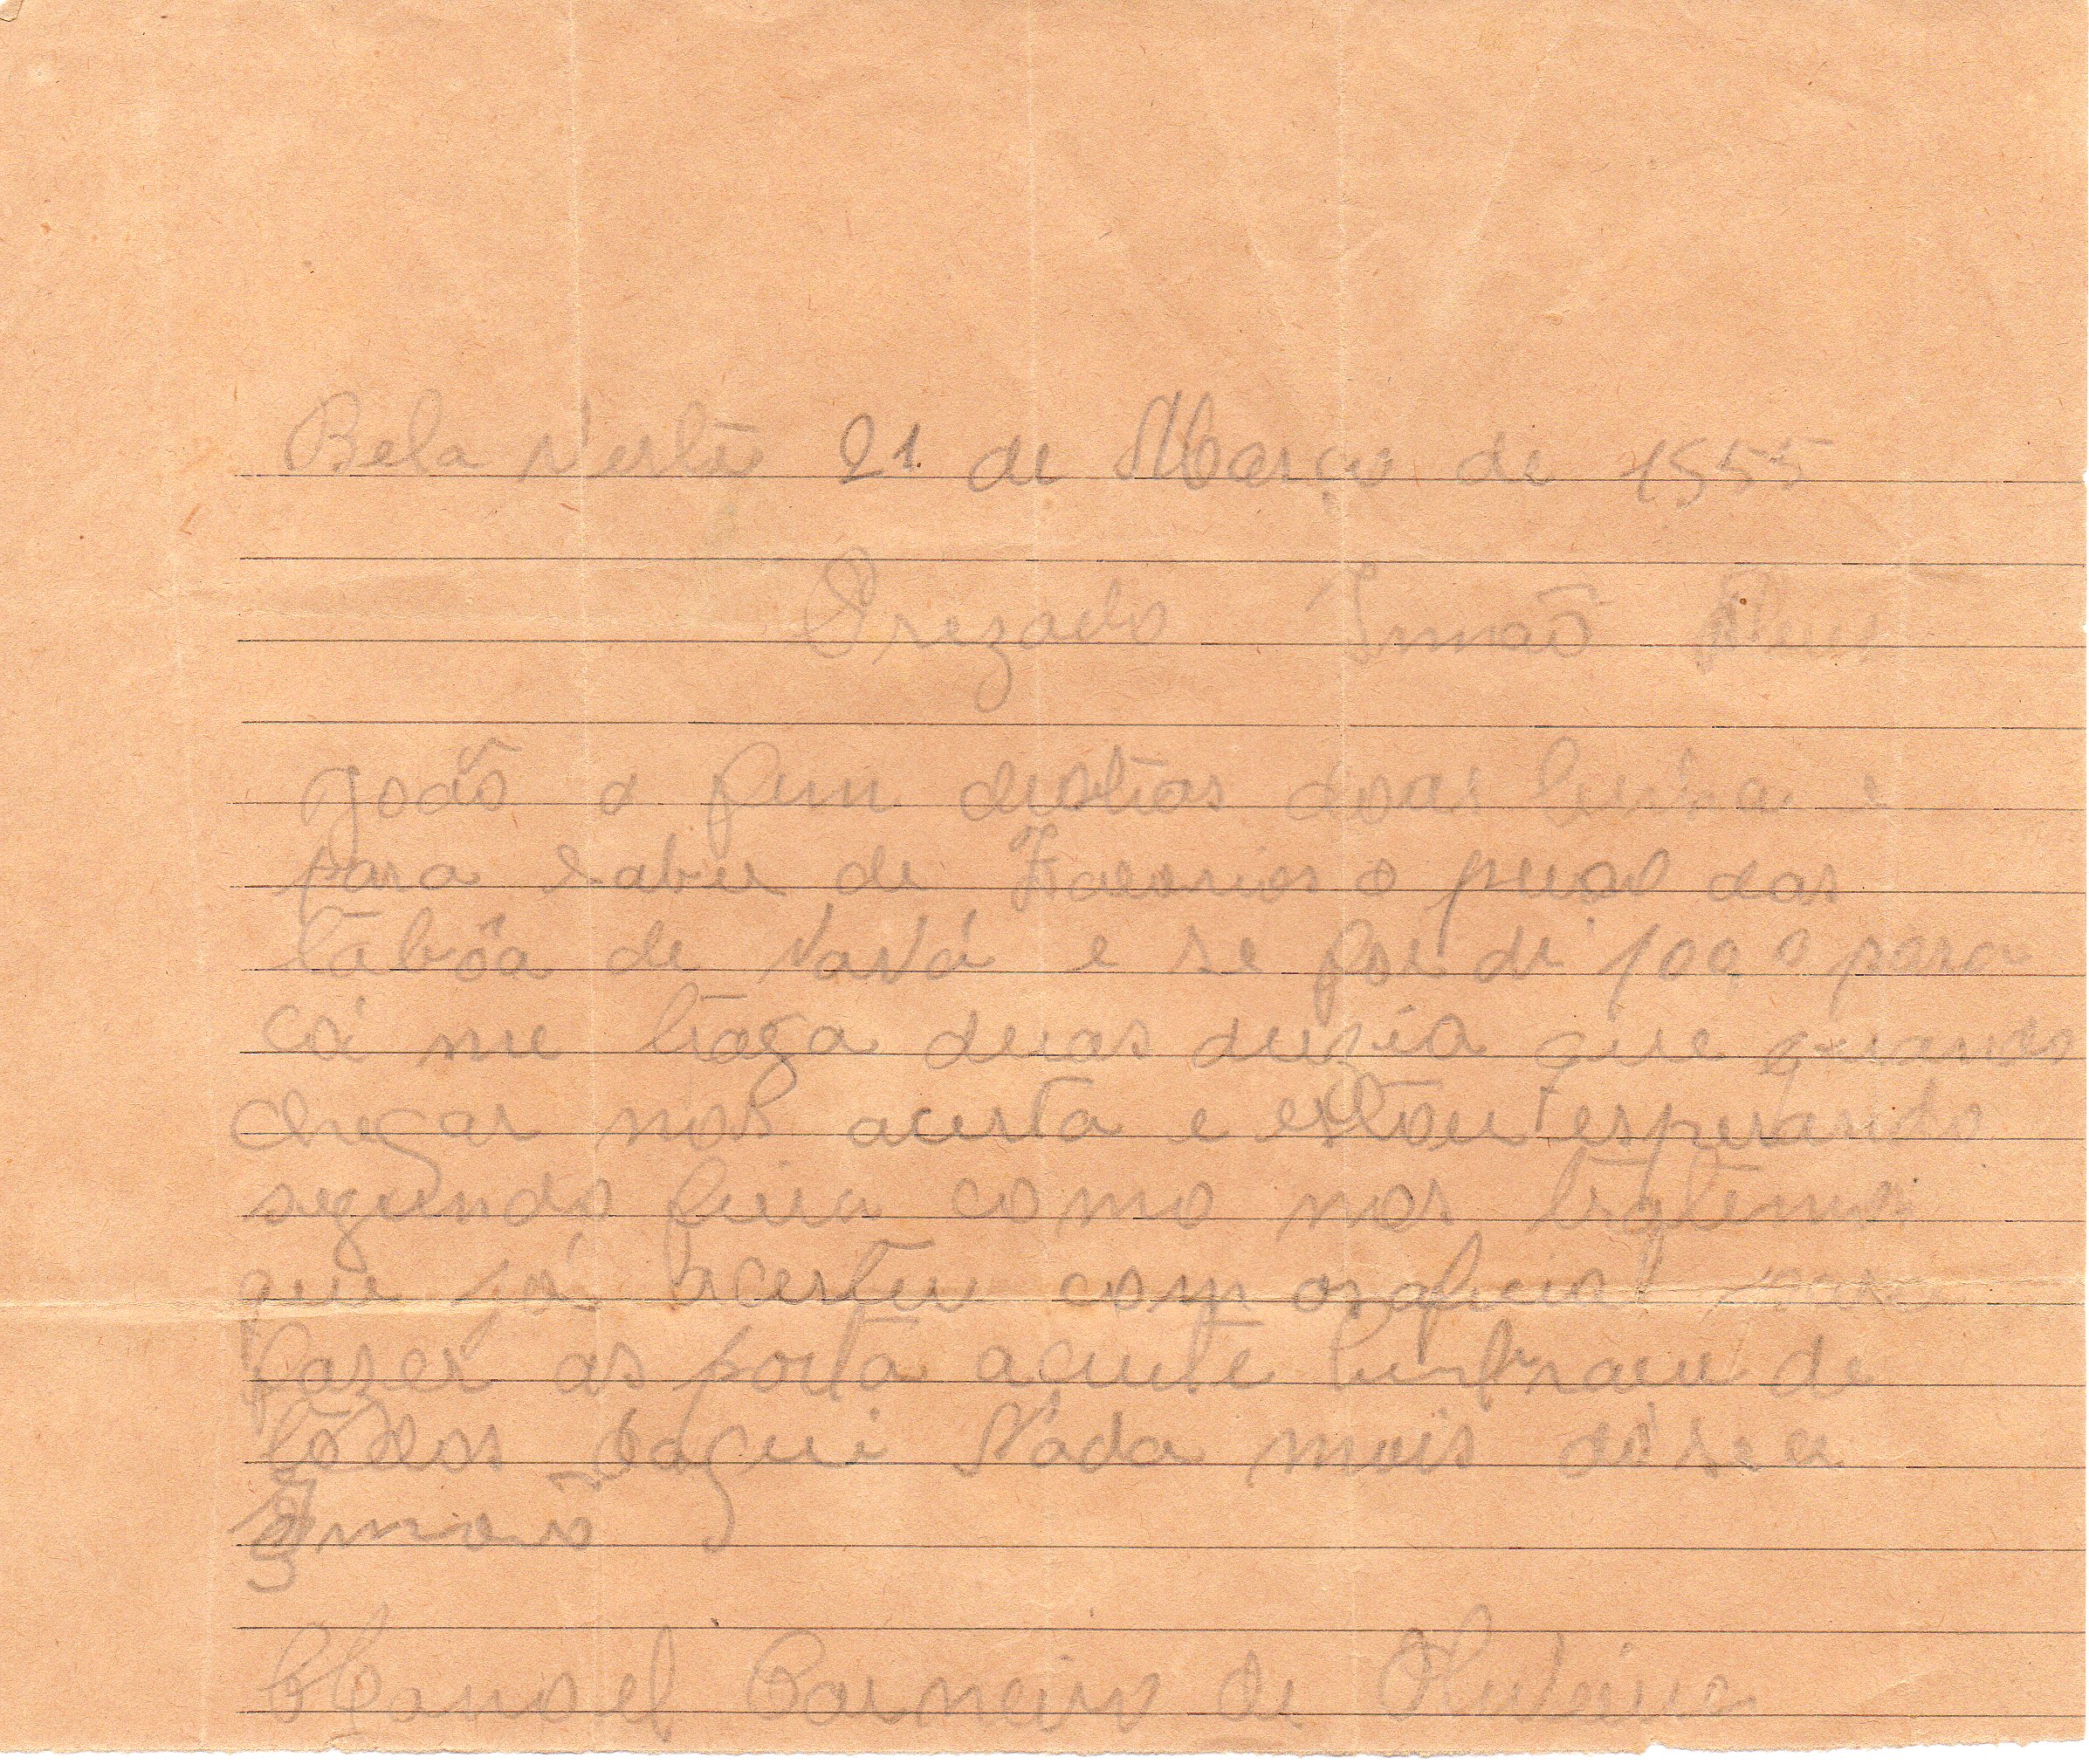 Bela Vista 21 de Março de 1955
Prezado Irmão
João o fim destias duas linha e
para saber de o preso das
tabôa de Vavá e se for di 100,0 para
cá me traga duas duzia que quando
chegar nos acerta e estou esperando
segundo feira como nos tratemos
que já acertei com para
fazer as porta aceite lenbraeu de
todos Daqui Nada mais do seu
Irmaõ
Manoel Carneiro de Oliveira